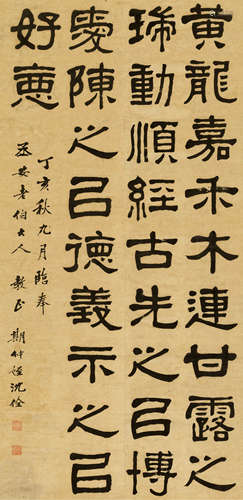 黃龍嘉禾木連甘露之
瑞動順經古先之㠯博
愛陳之㠯德義示之㠯
好惡
丁亥秋九月臨奉
丞安老伯大人 教正 期仲姪沈佺